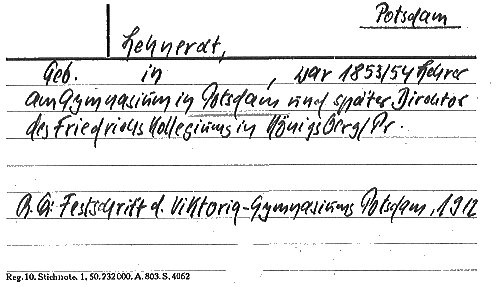 Potsdam
Lehnerdt,
Geb. in , war 1853/54 Lehrer
am Gymnasium in Potsdam und später Direktor
des Friedrichs Kollegiums in Königsberg/Pr.
B. A: Festschrift d. Viktoria-Gymnasiums Potsdam, 1912
Reg. 10. Stichnote. 1, 50. 232 000. A. 803. S. 4062